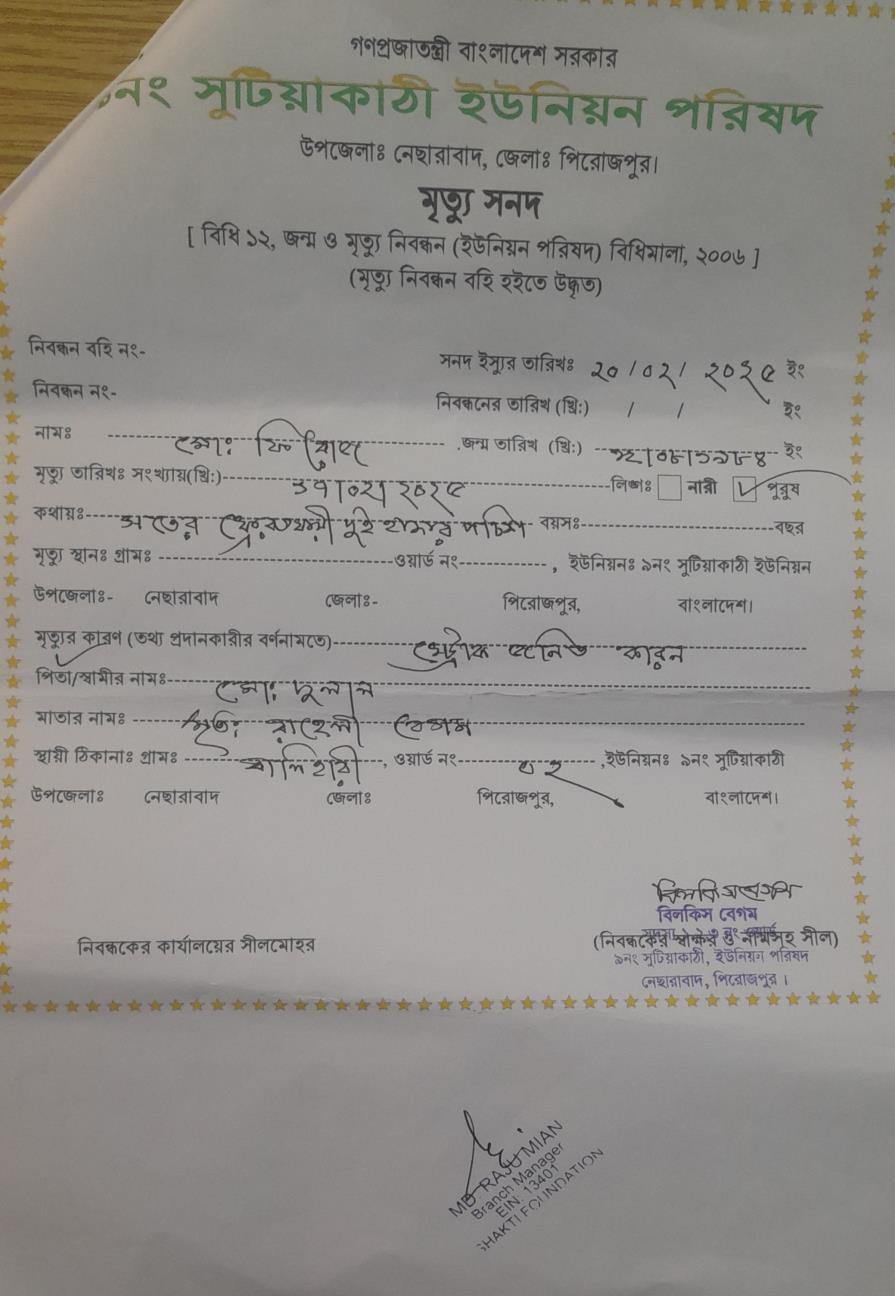 গণপ্রজাতন্ত্রী বাংলাদেশ সরকার
নং সুটিয়াকাঠী ইউনিয়ন পরিষদ
উপজেলাঃ নেছারাবাদ, জেলাঃ পিরোজপুর।
মৃত্যু সনদ
[ বিধি ১২, জন্ম ও মৃত্যু নিবন্ধন (ইউনিয়ন পরিষদ) বিধিমালা, ২০০৬ ]
(মৃত্যু নিবন্ধন বহি হইতে উদ্ধৃত)
নিবন্ধন বহি নং-
সনদ ইস্যুর তারিখঃ ২০/০২/ ২০২৫ ইং
নিবন্ধন নং-
নিবন্ধনের তারিখ (খ্রিঃ) / / ইং
নামঃ মোঃ জন্ম তারিখ (খ্রিঃ) ইং
মৃত্যু তারিখঃ সংখ্যায়(খ্রিঃ) ১৭/০২/২০২৫ লিঙ্গঃ নারী পুরুষ
কথায়ঃ সতের ফেব্রুয়ারী দুই হাজার পঁচিশ বয়সঃ বছর
মৃত্যু স্থানঃ গ্রামঃ ওয়ার্ড নং , ইউনিয়নঃ ৯নং সুটিয়াকাঠী ইউনিয়ন
উপজেলাঃ- নেছারাবাদ জেলাঃ- পিরোজপুর, বাংলাদেশ।
মৃত্যুর কারণ (তথ্য প্রদানকারীর বর্ণনামতে) স্ট্রোক জনিত কারন
পিতা/স্বামীর নামঃ মোঃ দুলাল
মাতার নামঃ বেগম
স্থায়ী ঠিকানাঃ গ্রামঃ বালিহারী , ওয়ার্ড নং ,ইউনিয়নঃ ৯নং সুটিয়াকাঠী
উপজেলাঃ নেছারাবাদ জেলাঃ পিরোজপুর, বাংলাদেশ।
বিলকিস বেগম
নিবন্ধকের কার্যালয়ের সীলমোহর
(নিবন্ধকের স্বাক্ষর ও নামসহ সীল)
৯নং সুটিয়াকাঠী, ইউনিয়ন পরিষদ
নেছারাবাদ, পিরোজপুর।
MD RAJU MIAN
Branch Manager
EIN: 13401
SHAKTI FOUNDATION